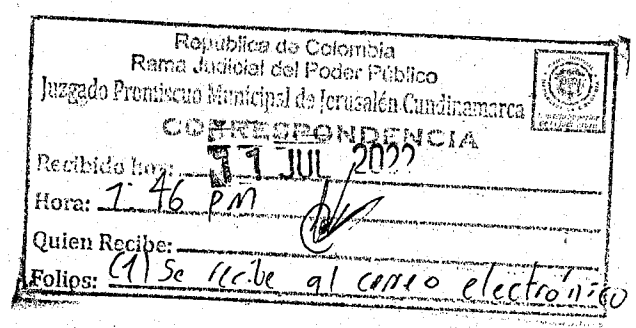 República de Colombia
Rama Judicial del Poder Público
Juzgado Promiscuo Municipal de Jerusalén Cundinamarca
CORRESPONDENCIA
Recibido hoy: 11 JUL 2022
Hora: 1:46 PM
Quien Recibe:
Folios: (1) Se recibe al correo electrónico